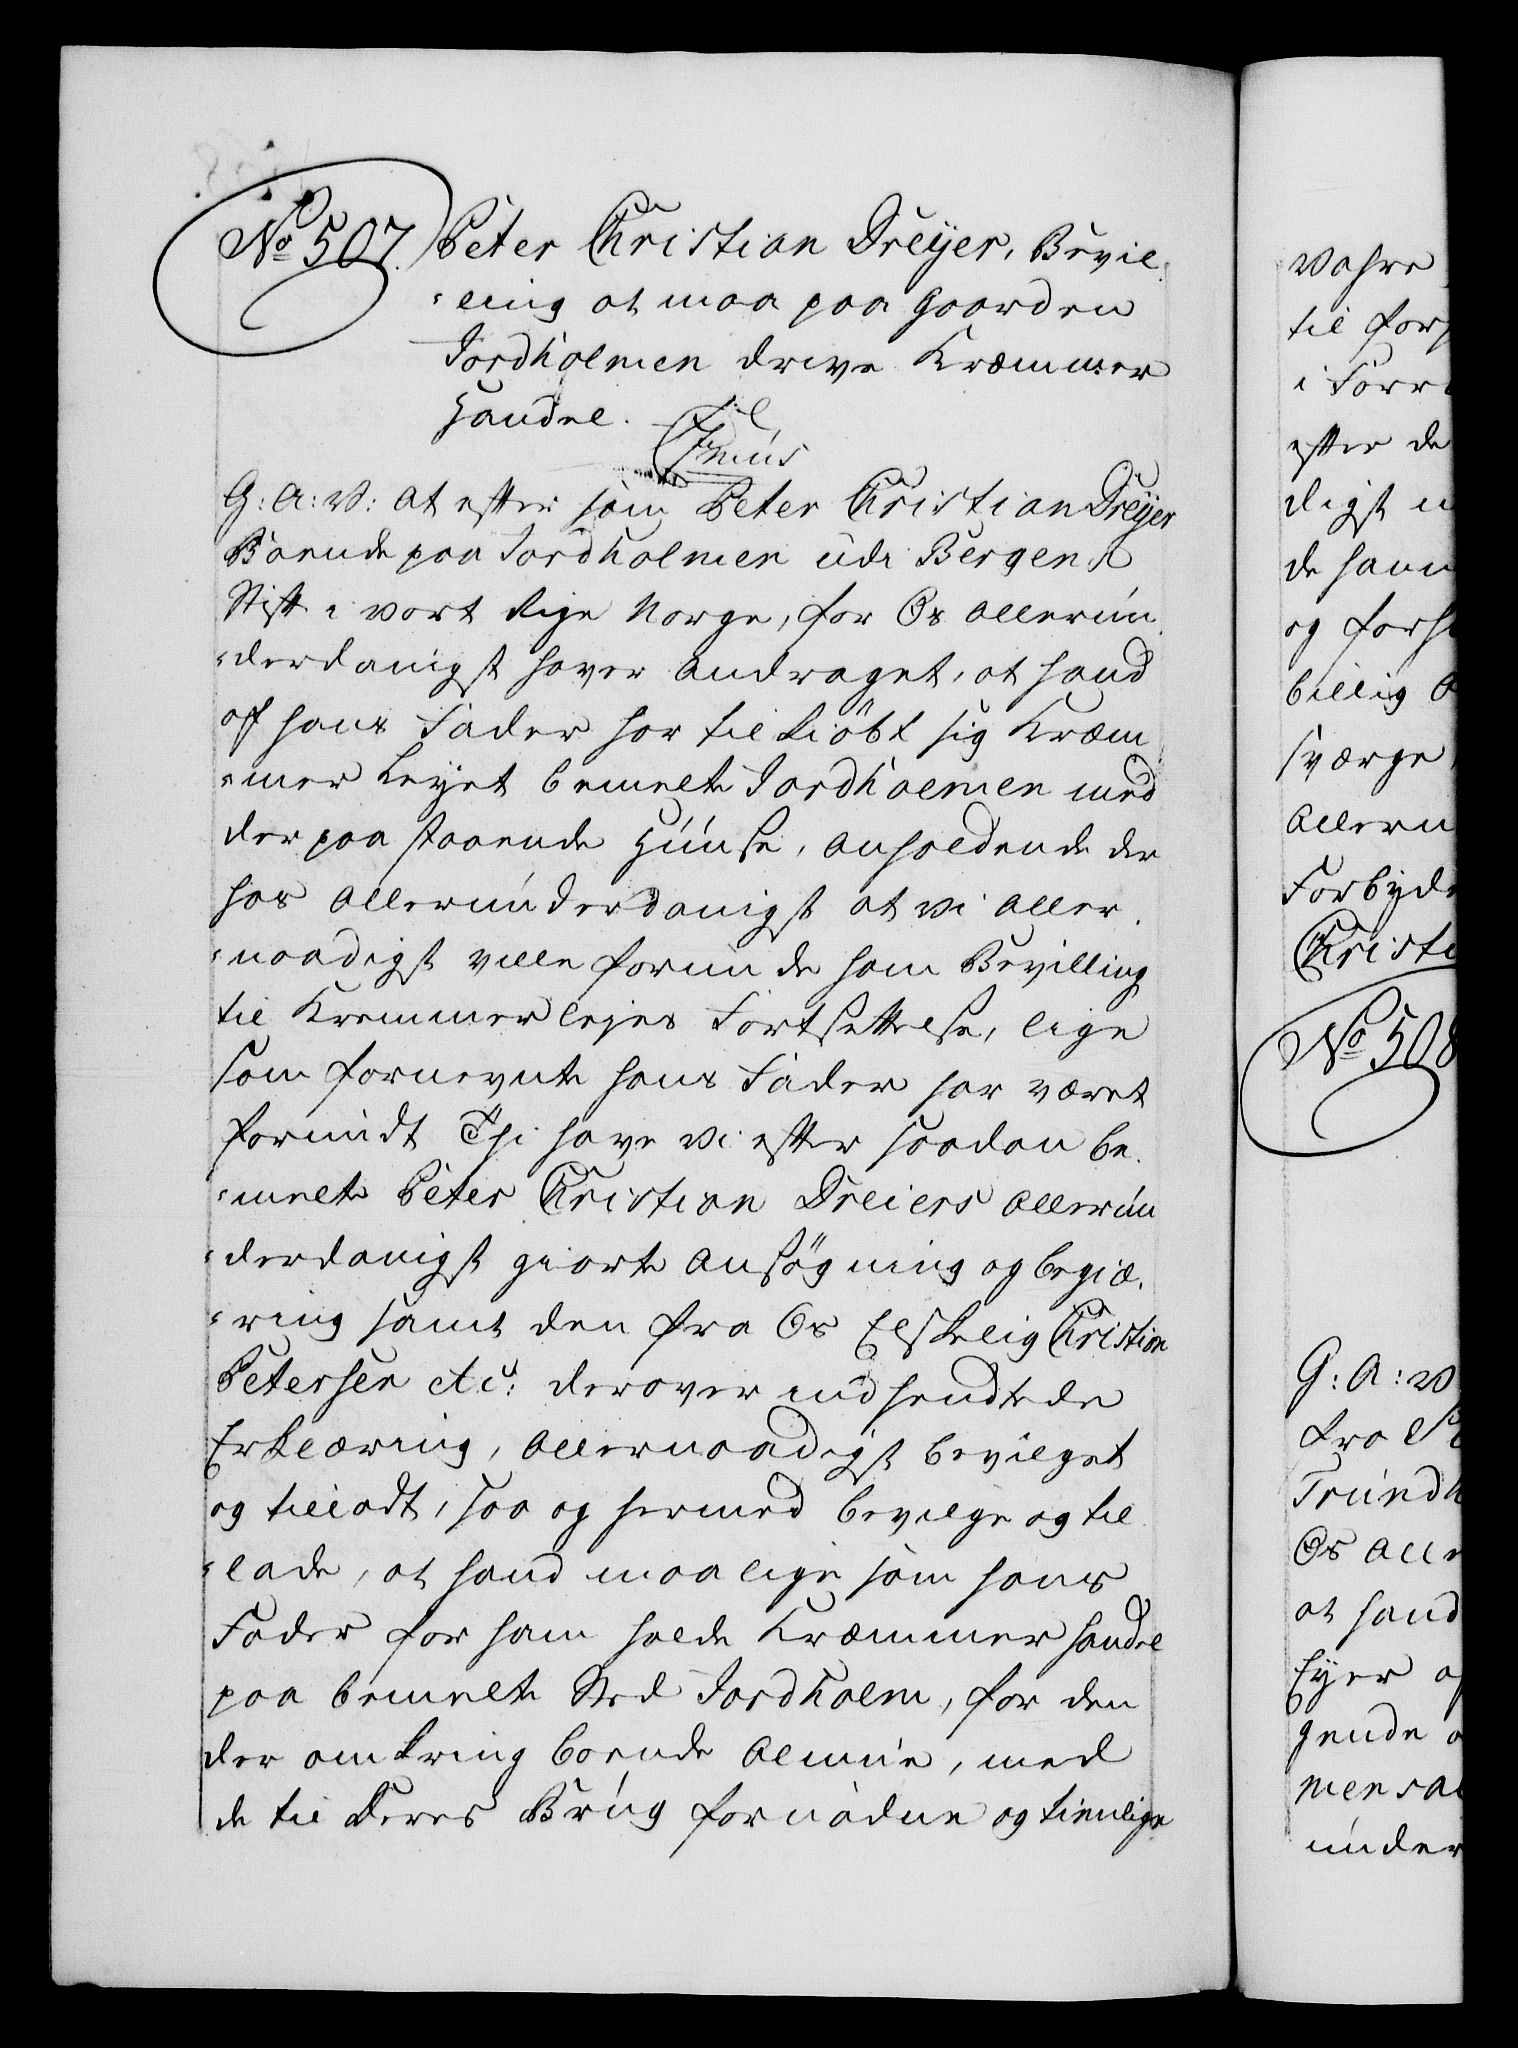 No 507. Peter Christian Dreyer, Bevil-
-ling at maa paa Gaarden
Jordholmen drive Kræmmer
Handel.
G: A: V: At efter som Peter Christian Dreyer
Boende paa Jordholmen udi Bergens
Stift i vort Rige Norge, for Os allerun-
-derdanigst haver andraget, at hand
af hans Fader har til kiöbt sig Kræm
-mer Leyet bemelte Jordholmen med
der paa staaende Huuse, anholdende der
hos allerunderdanigst at vi aller-
-naadigst ville forunde ham Bevilling
til Kremmer lejes Fortsettelse, lige
som fornevnte hans Fader har været
forundt Thi have vi efter saadan be-
-melte Peter Christian Dreiers allerun
-derdanigst giorte Ansögning og begiæ-
-ring samt den fra Os Elskelig Christian
Petersen etc: derover indsendte de
Erklæring, allernaadigst bevilget
og tilladt, saa og hermed bevilge og til
-lade, at hand maa lige som hans
Fader for ham holde Kræmmer handel
paa bemelte Sted Jordholm, for den
der omkring boende Almue, med
de til Deres Brug fornödne og tienlige
Vahre
til for
i Forr
efter de
digst
de ham
og forh
billig
sværge
Allern
Forbyde
Christi
No 508
G: A: V
fra
Trundh
Os Alle
at hand
Eyer
gende
men
under